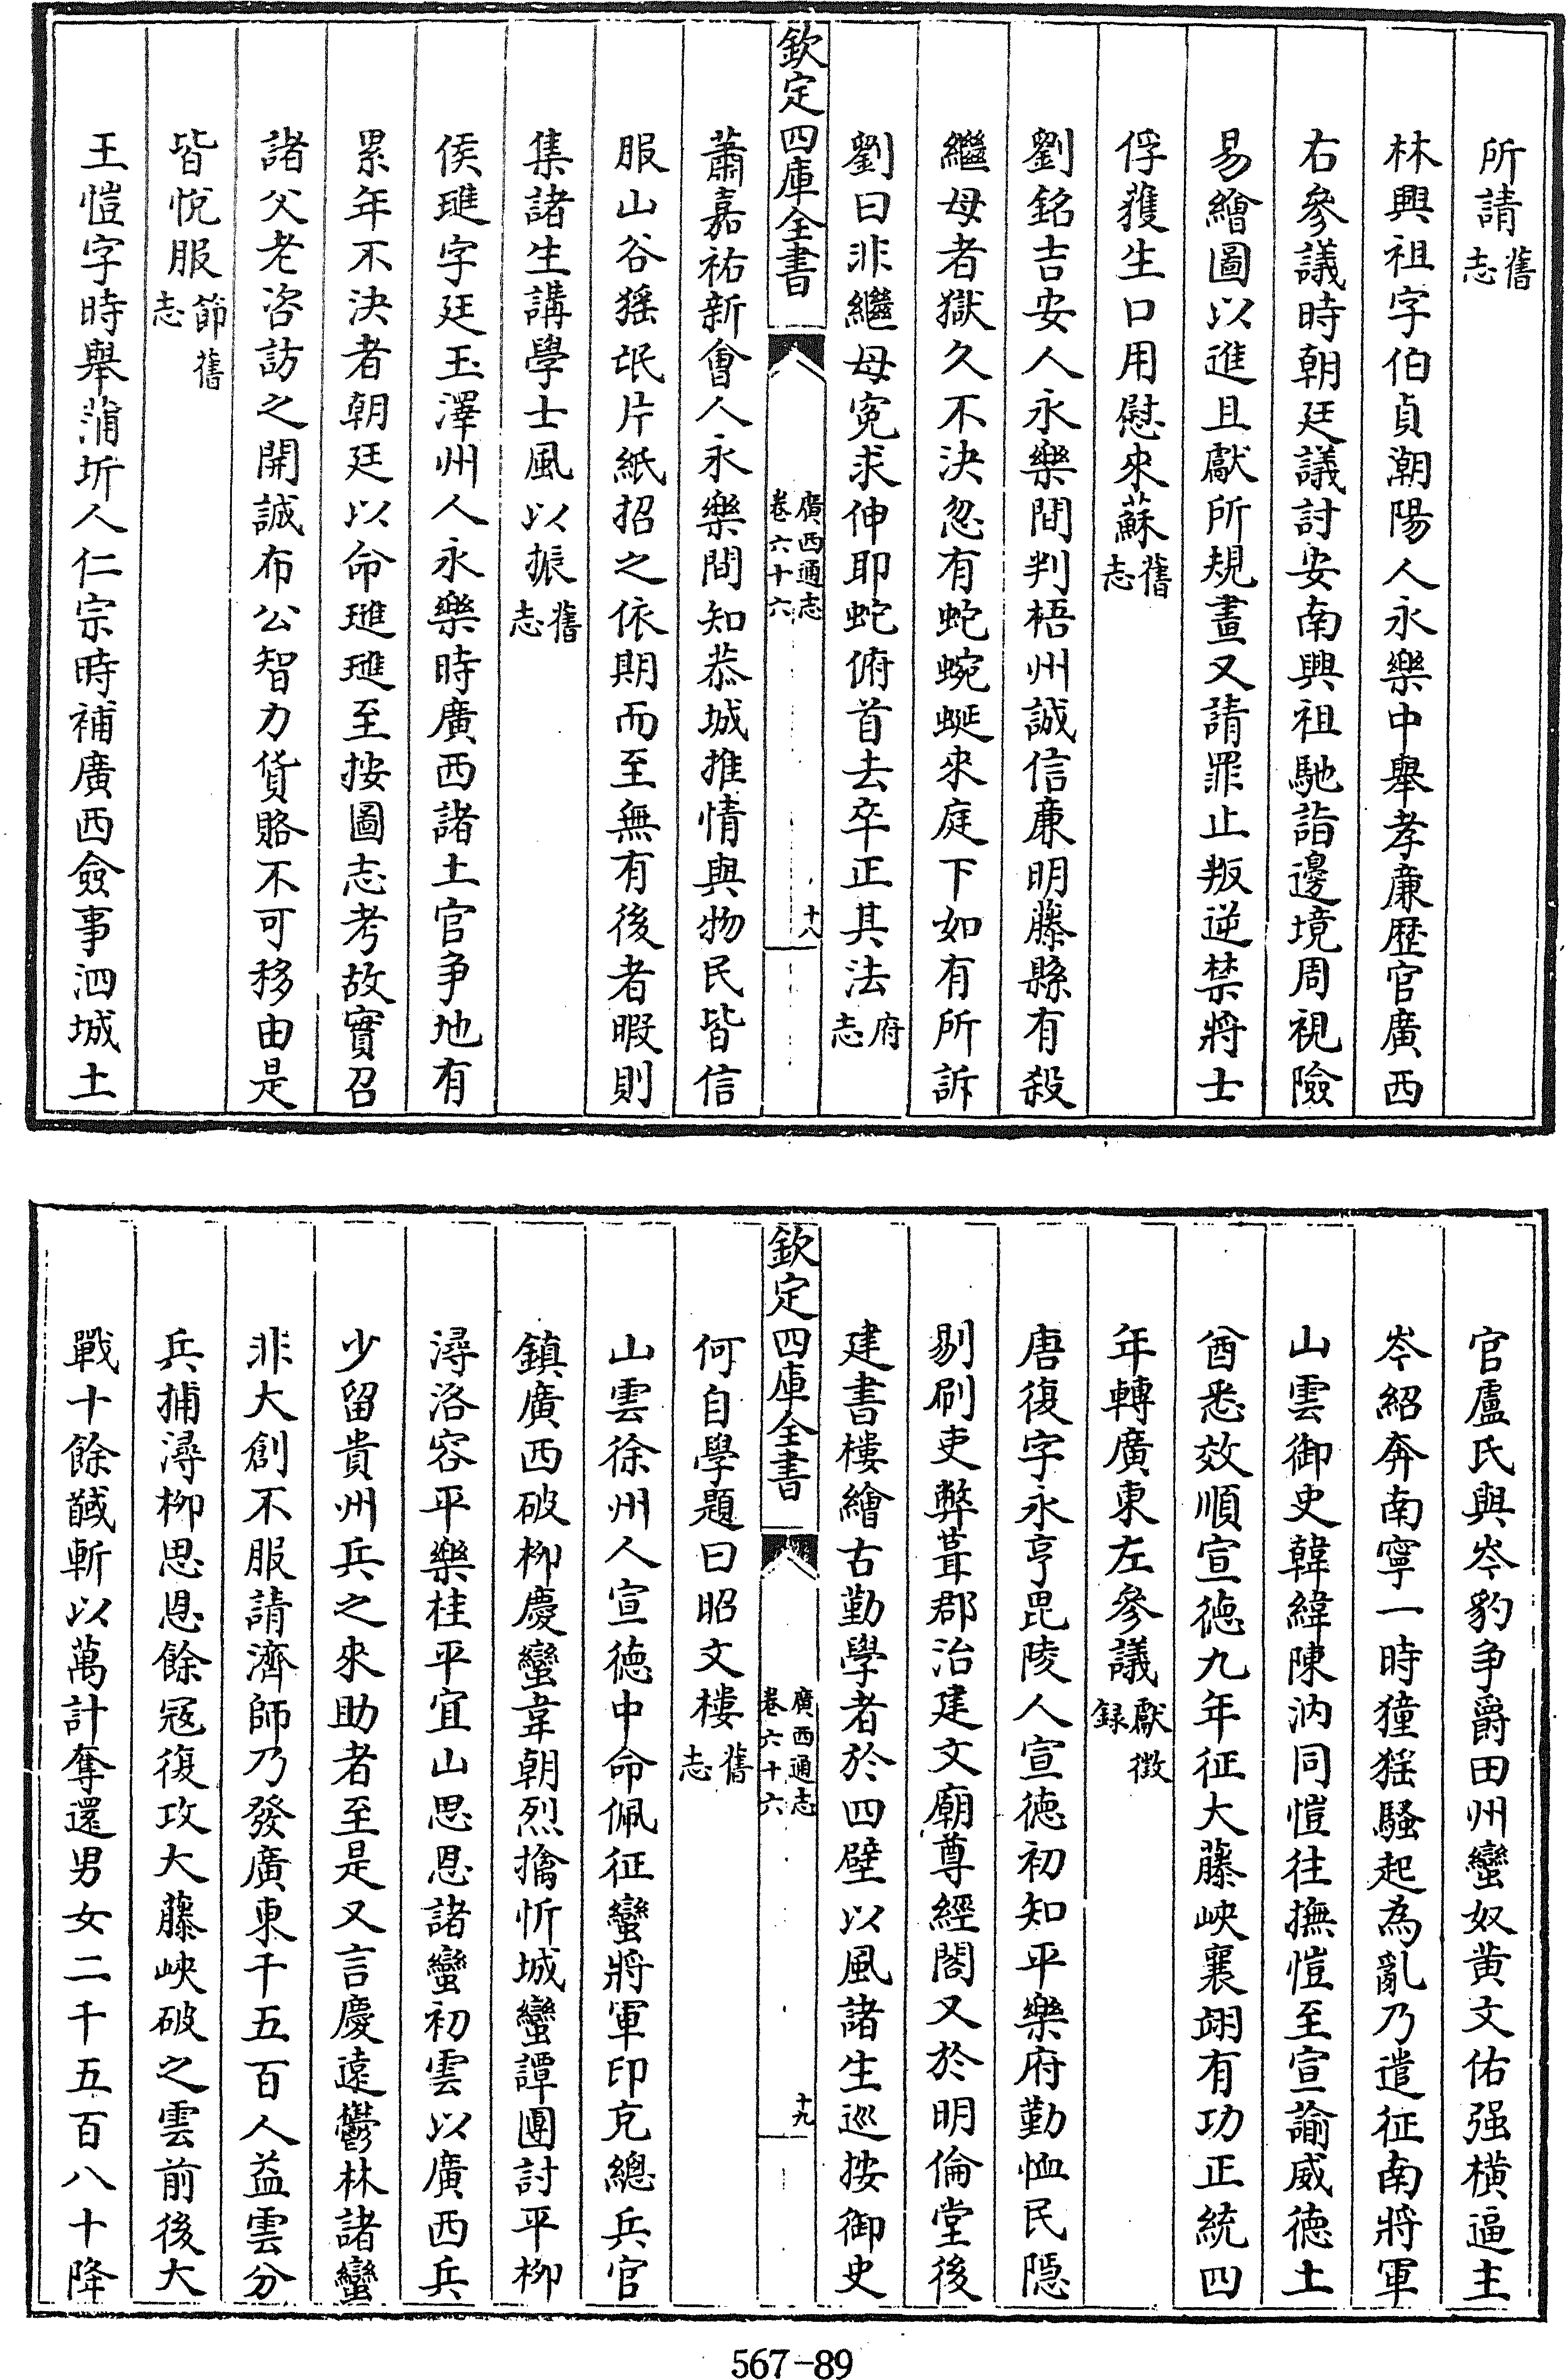 所請舊志
林興祖字伯貞潮陽人永樂中舉孝廉歷官廣西
右參議時朝廷議討安南興祖馳詣邊境周視險
易繪圖以進且獻所規畫又請罪止叛逆禁將士
俘獲生口用慰來蘇舊志
劉銘吉安人永樂間判梧州誠信廉明藤縣有殺
繼母者獄久不決忽有蛇蜿蜒來庭下如有所訴
劉曰非繼母寃求伸耶蛇俯首去卒正其法府志
欽定四庫全書 廣西通志卷六十六 十八
蕭嘉祐新會人永樂間知恭城推情與物民皆信
服山谷猺氓片紙招之依期而至無有後者暇則
集諸生講學士風以振舊志
侯璡字廷玉澤州人永樂時廣西諸土官争地有
累年不決者朝廷以命璡璡至按圖志考故實召
諸父老咨訪之開誠布公智力貨賂不可移由是
皆悅服節舊志
王愷字時舉蒲圻人仁宗時補廣西僉事泗城土
官盧氏與岑豹争爵田州蠻奴黄文佑强橫逼主
岑紹奔南寧一時獞猺騷起為亂乃遣征南將軍
山雲御史韓緯陳汭同愷往撫愷至宣諭威德土
酋悉效順宣德九年征大藤峽襄翊有功正統四
年轉廣東左參議獻徵録
唐復字永亨毘陵人宣德初知平樂府勤恤民隠
剔刷吏弊葺郡治建文廟尊經閣又於明倫堂後
建書樓繪古勤學者於四壁以風諸生巡按御史
欽定四庫全書 廣西通志卷六十六 十九
何自學題曰昭文樓舊志
山雲徐州人宣德中命佩征蠻將軍印充總兵官
鎮廣西破柳慶蠻韋朝烈擒忻城蠻譚團討平柳
潯洛容平樂桂平宜山思恩諸蠻初雲以廣西兵
少留貴州兵之來助者至是又言慶遠鬱林諸蠻
非大創不服請濟師乃發廣東千五百人益雲分
兵捕潯柳思恩餘冦復攻大藤峽破之雲前後大
戰十餘馘斬以萬計奪還男女二千五百八十降
567-89